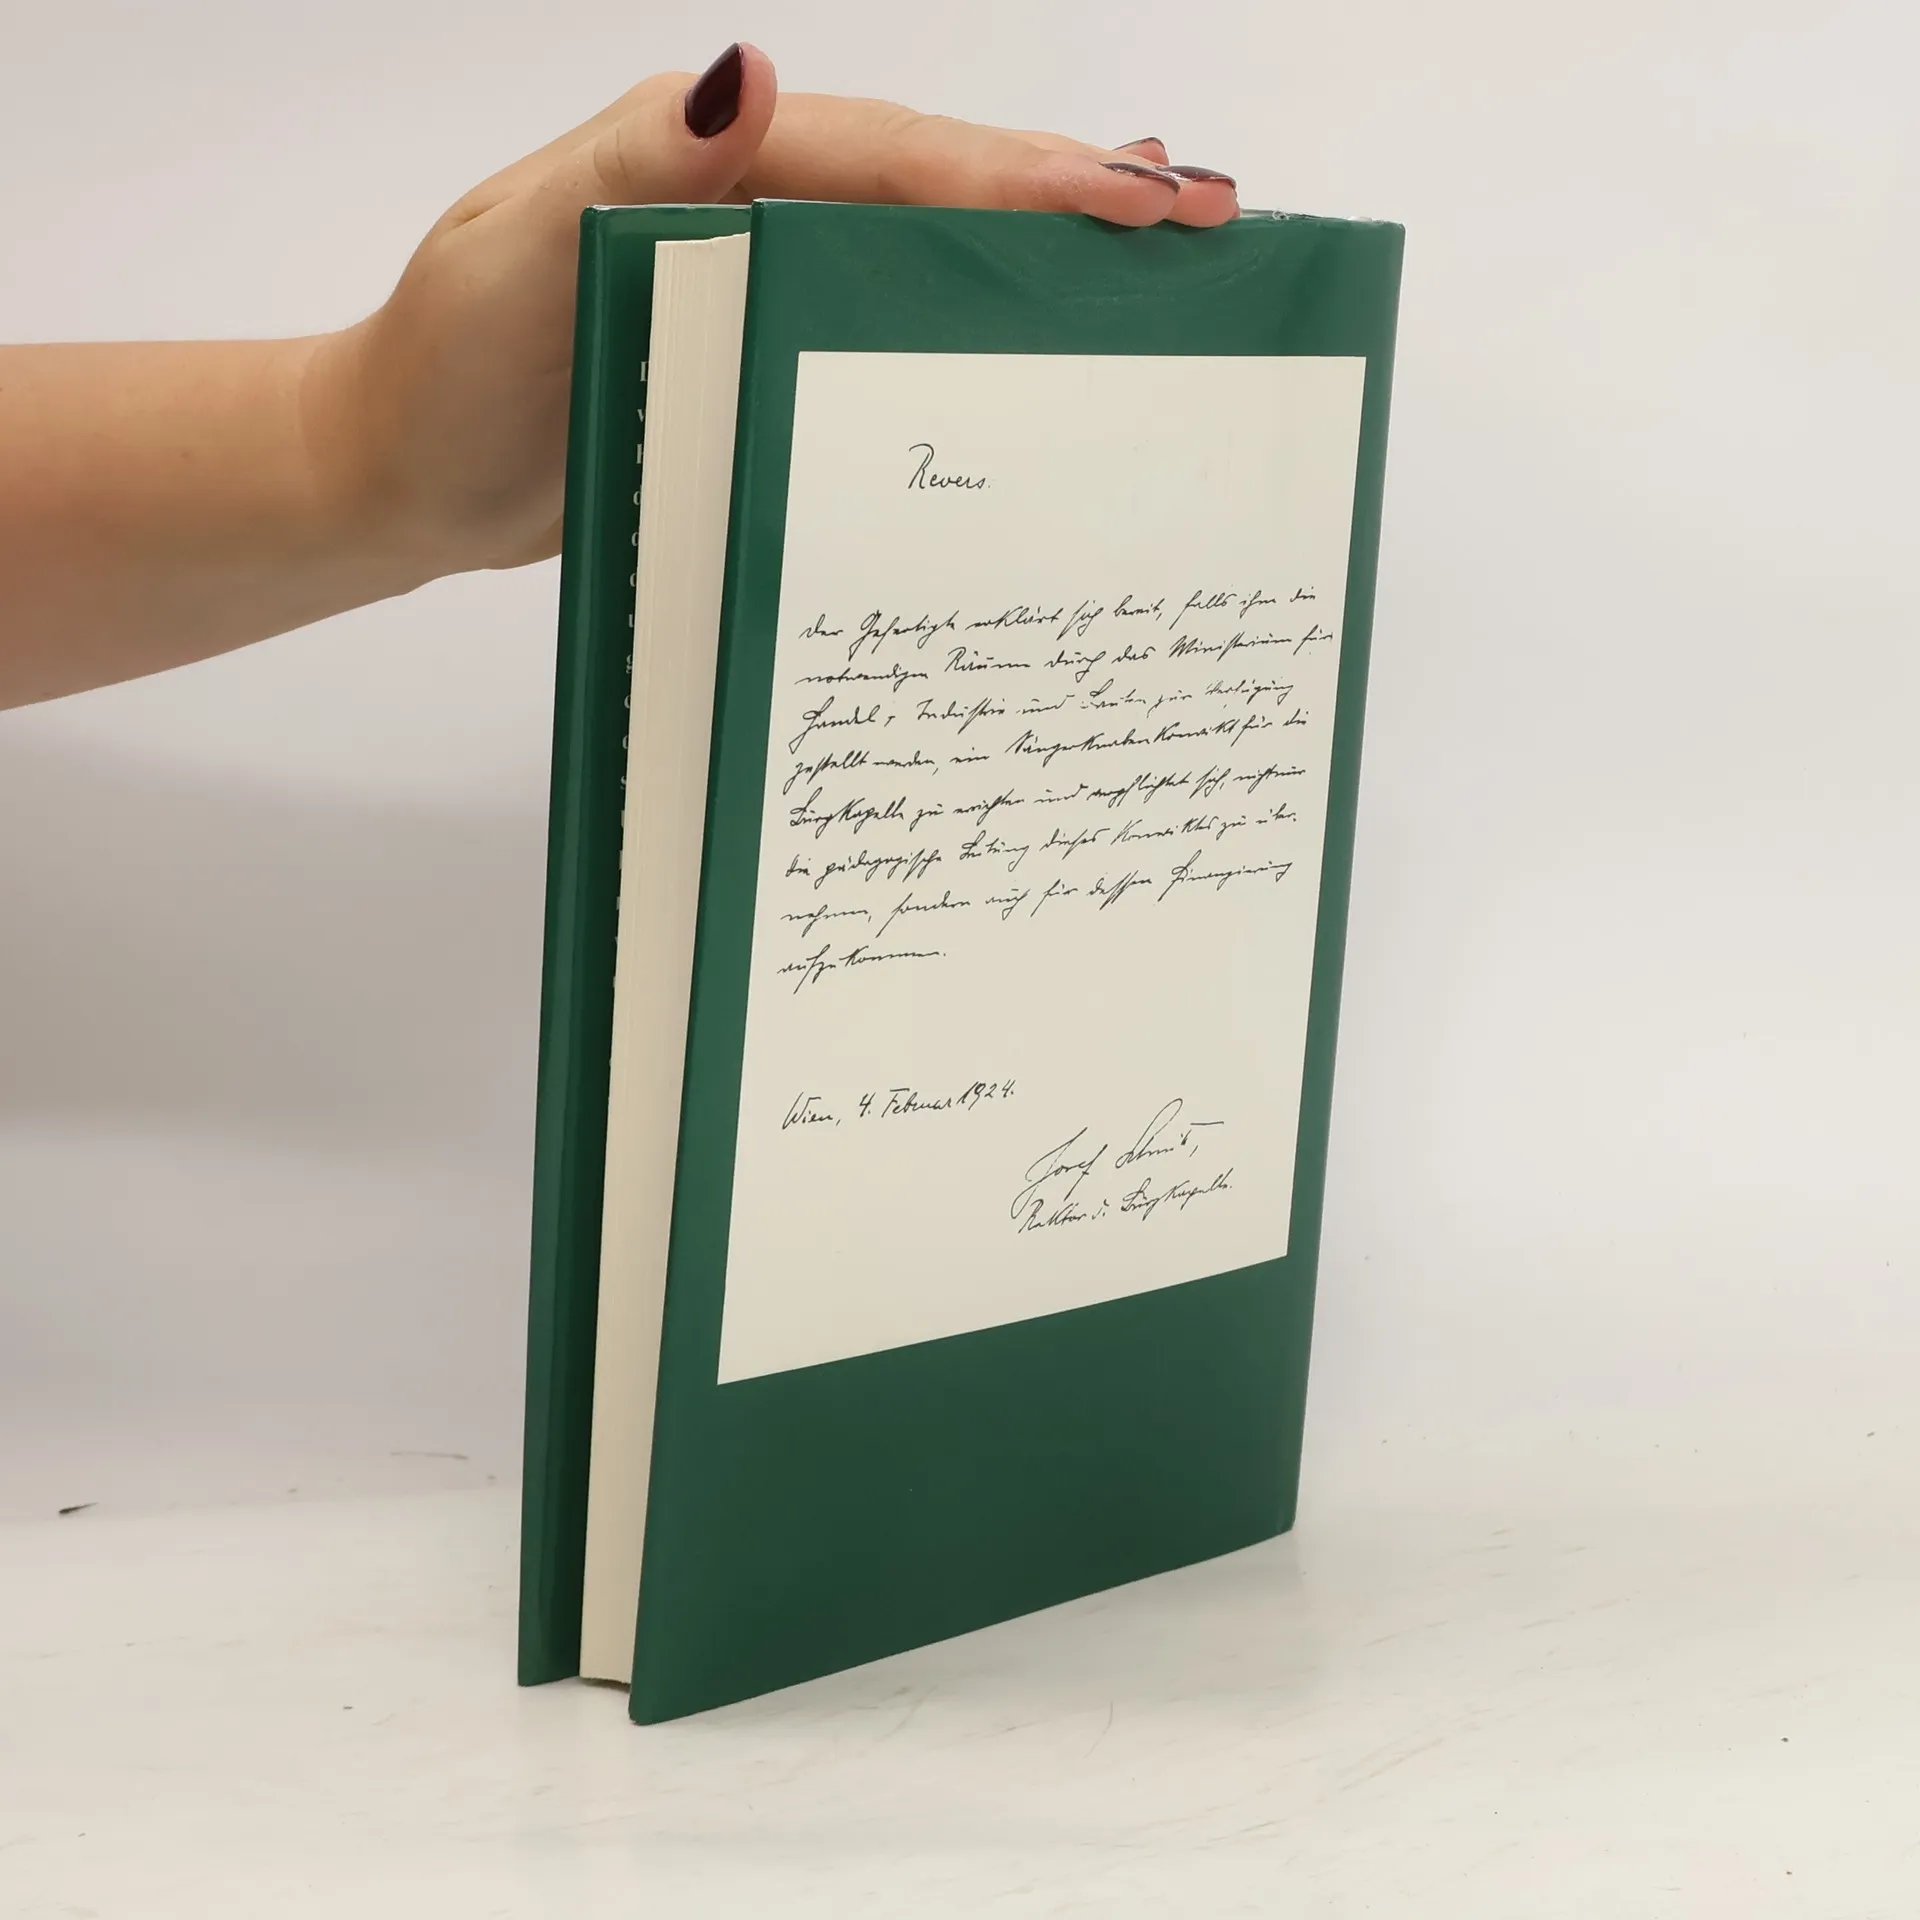 Revers.
Der Gefertigte erklärt sich bereit, falls ihm die
notwendigen Räume durch das Ministerium für
Handel, Industrie und Bauten zur Verfügung
gestellt werden, ein Sängerknabenkonvikt für die
Burgkapelle zu errichten und verpflichtet sich, nicht nur
die pädagogische Leitung dieses Konviktes zu über-
nehmen, sondern auch für dessen Finanzierung
aufzukommen.
Wien, 4. Februar 1924.
Josef Schnitt,
Rektor d. Burgkapelle.